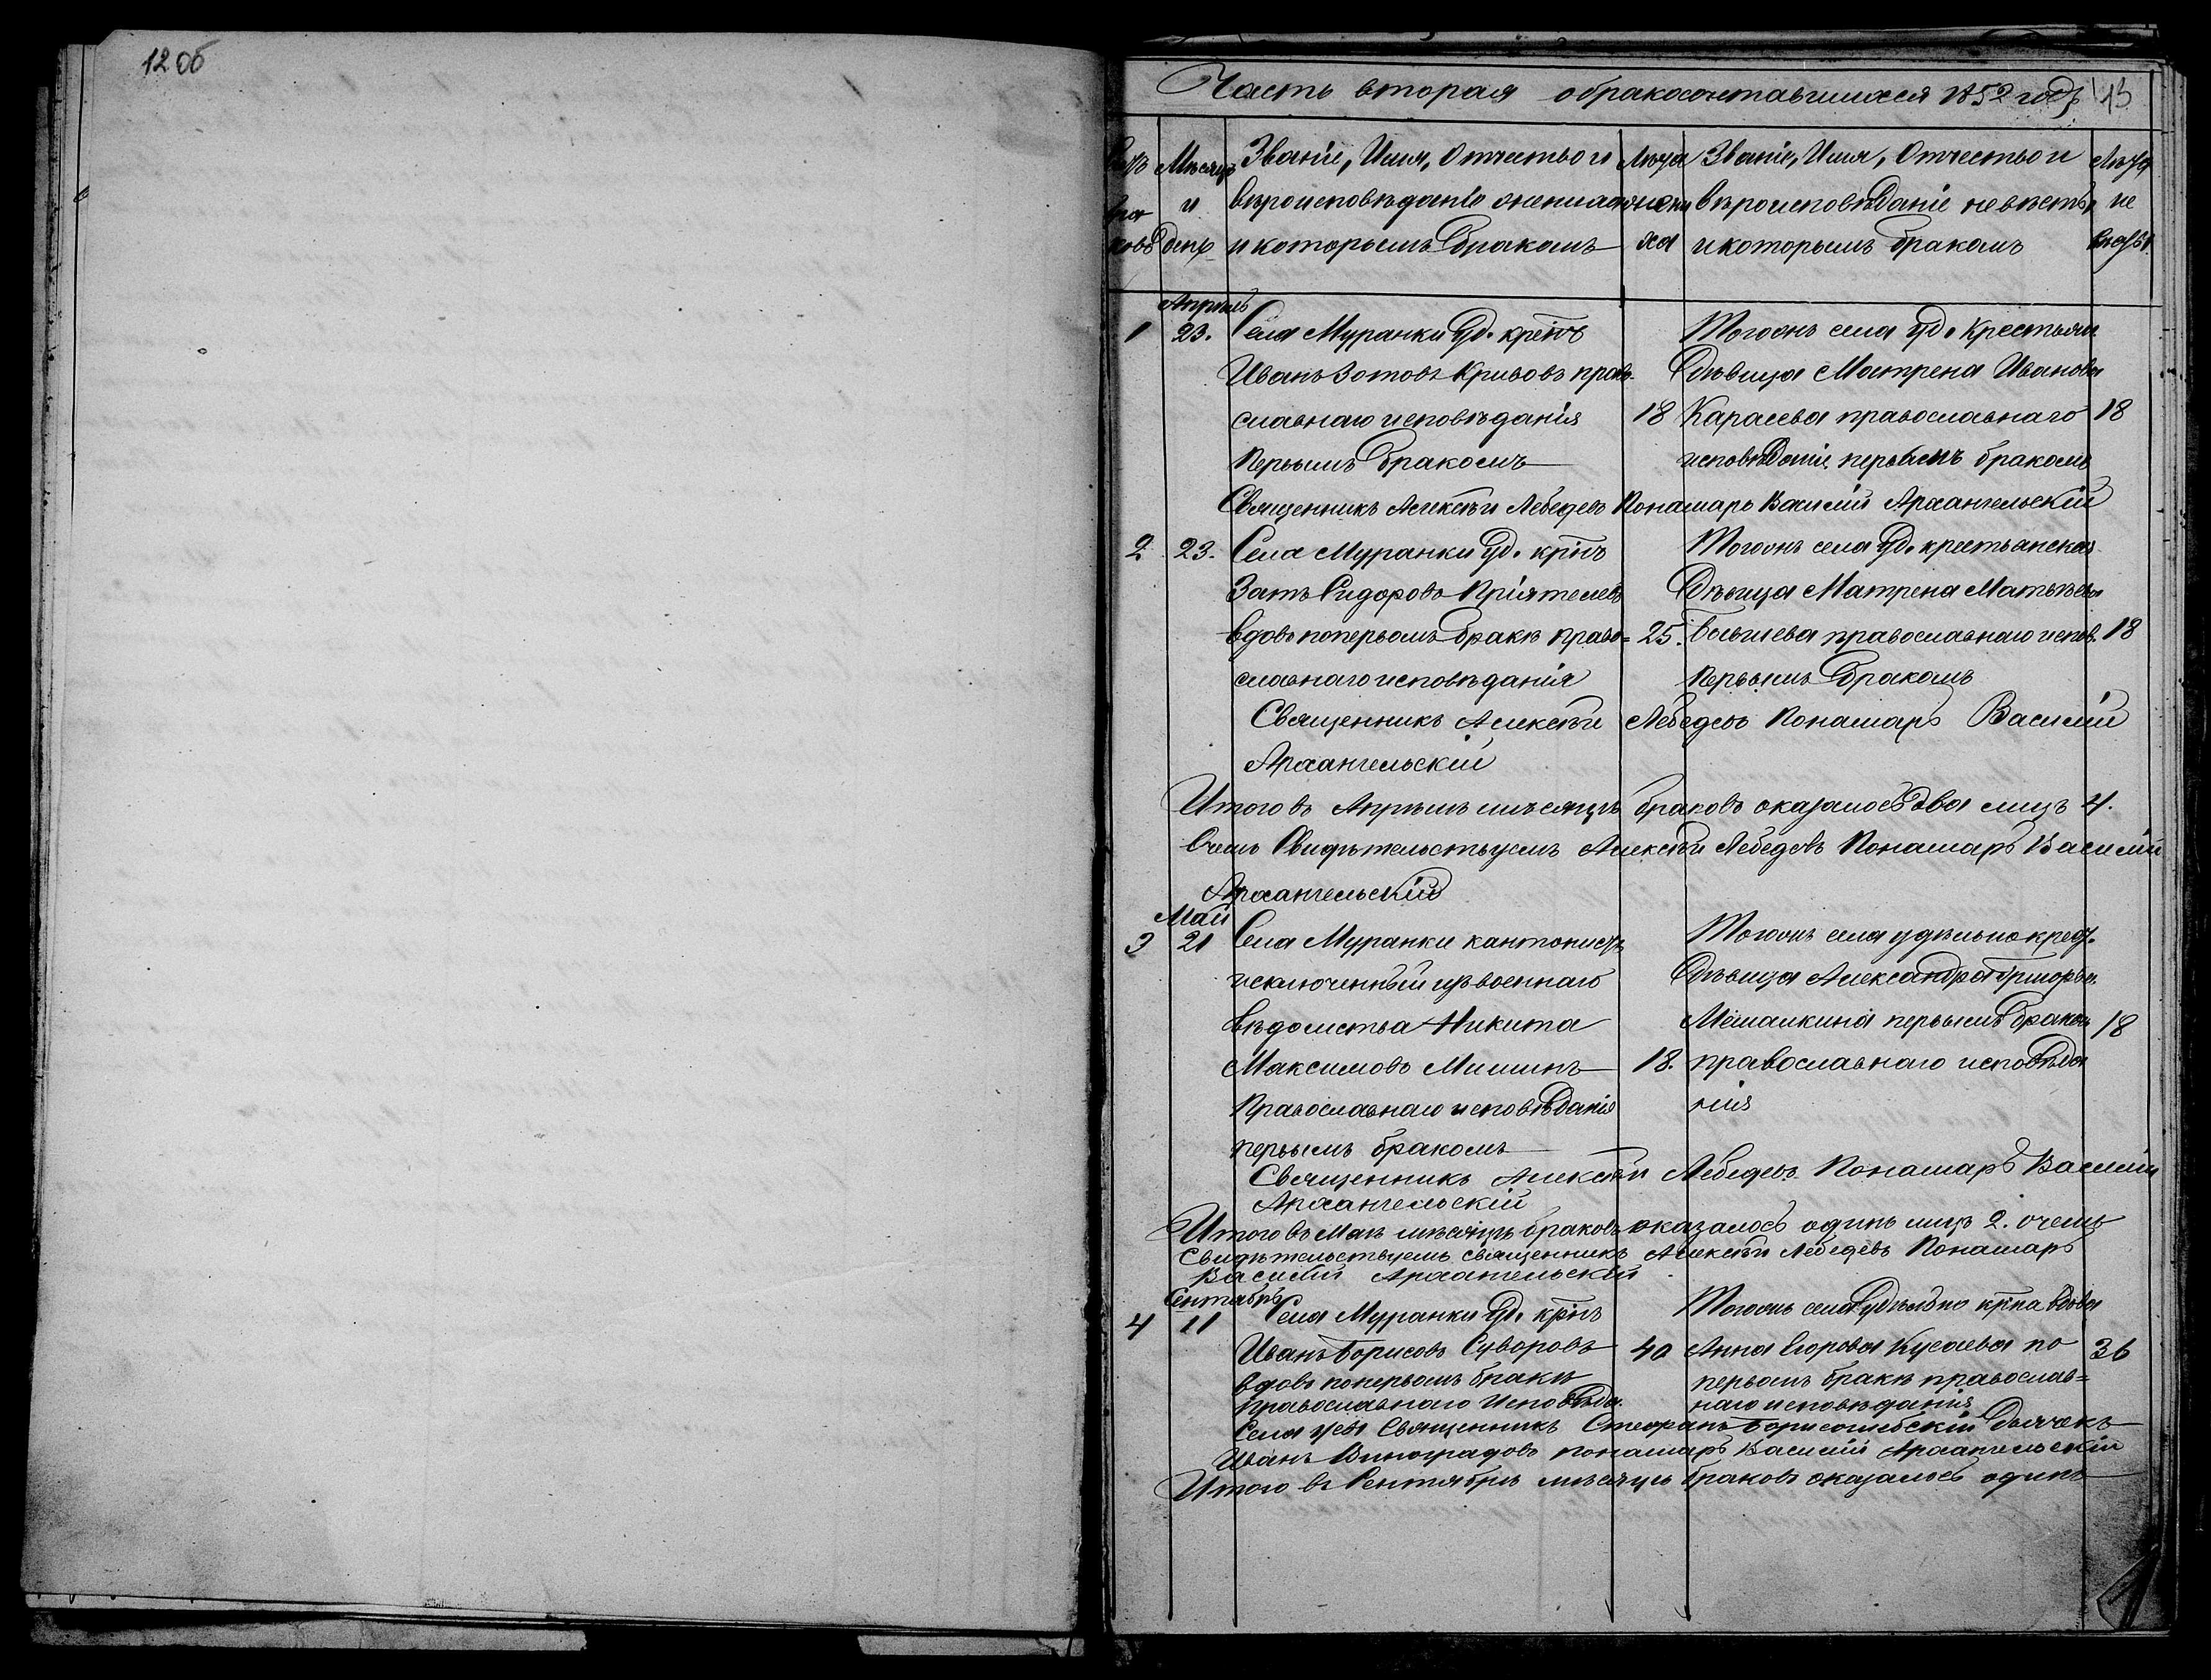 12 об
Часть вторая о бракосочетавшихся 1852 году 13
Счетъ браковъ
Мѣсяцъ и день
Званіе, Имя, Отчество и
вѣроисповѣданіе жениха
и которымъ бракомъ
Лѣта жениха
Званіе, Имя, Отчество и
вѣроисповѣданіе невѣсты,
и которымъ бракомъ
Лѣта невѣсты
Апрѣль
1 23. Села Муранки Уд. крет́нъ Тогожъ села Уд. Крестьян.
Иванъ Зотовъ Кривовъ право- Дѣвица Матрена Иванова
славнаго исповѣданія 18 Карасева православнаго 18
Первымъ бракомъ исповѣданіе первымъ бракомъ
Священникъ Алексѣй Лебедевъ Понамарь Василій Архангельскій
2 23. Села Муранки Уд. крт́нъ Тогожъ села Уд. крестьянская
Зотъ Сидоровъ Пріятелевъ Дѣвица Матрена Матвѣева
вдовъ по первомъ бракѣ право= 25. православнаго испов. 18
славнаго исповѣданія Первымъ бракомъ
Священникъ Алексѣй Лебедевъ Понамарь Василій
Архангельскій
Итого въ Апрѣлѣ мѣсяцѣ браковъ оказалось два лицъ 4.
В чемъ Свидѣтельствуемъ Алексѣй Лебедевъ Понамарь Василій
Архангельскій
Май
3 21 Села Муранки кантонистъ Тогожъ села удѣльно крес.
исключенный изъ военнаго Дѣвица Александра Григорьв.
вѣдомства Никита Мешалкина первымъ бракомъ 18
Максимовъ Мишинъ 18. православнаго исповѣда
Православнаго исповѣданія нія
первымъ бракомъ
Священникъ Алексѣй Лебедевъ Понамарь Василій
Архангельскій
Итого въ Маѣ мѣсяцѣ браковъ оказалось одинъ лицъ 2. о чемъ
свидѣтельствуемъ священникъ Алексѣй Лебедевъ Понамарь
Василій Архангельскій
Сентябрь
4 11 Села Муранки Уд. крт́нъ Тогожъ села Удѣльно крт́на вдова
Иванъ Борисовъ Суворовъ 40 Анна Егорова Кусаева по 36
вдовъ по первомъ бракѣ первомъ бракѣ православ=
православнаго Исповѣда. наго исповѣданія
Села Усы Священникъ Стефанъ Борисоглебскій Дьячекъ
Иванъ Виноградовъ понамарь Василій Архангельскій
Итого въ Сентябрѣ мѣсяцѣ браковъ оказалось одинъ